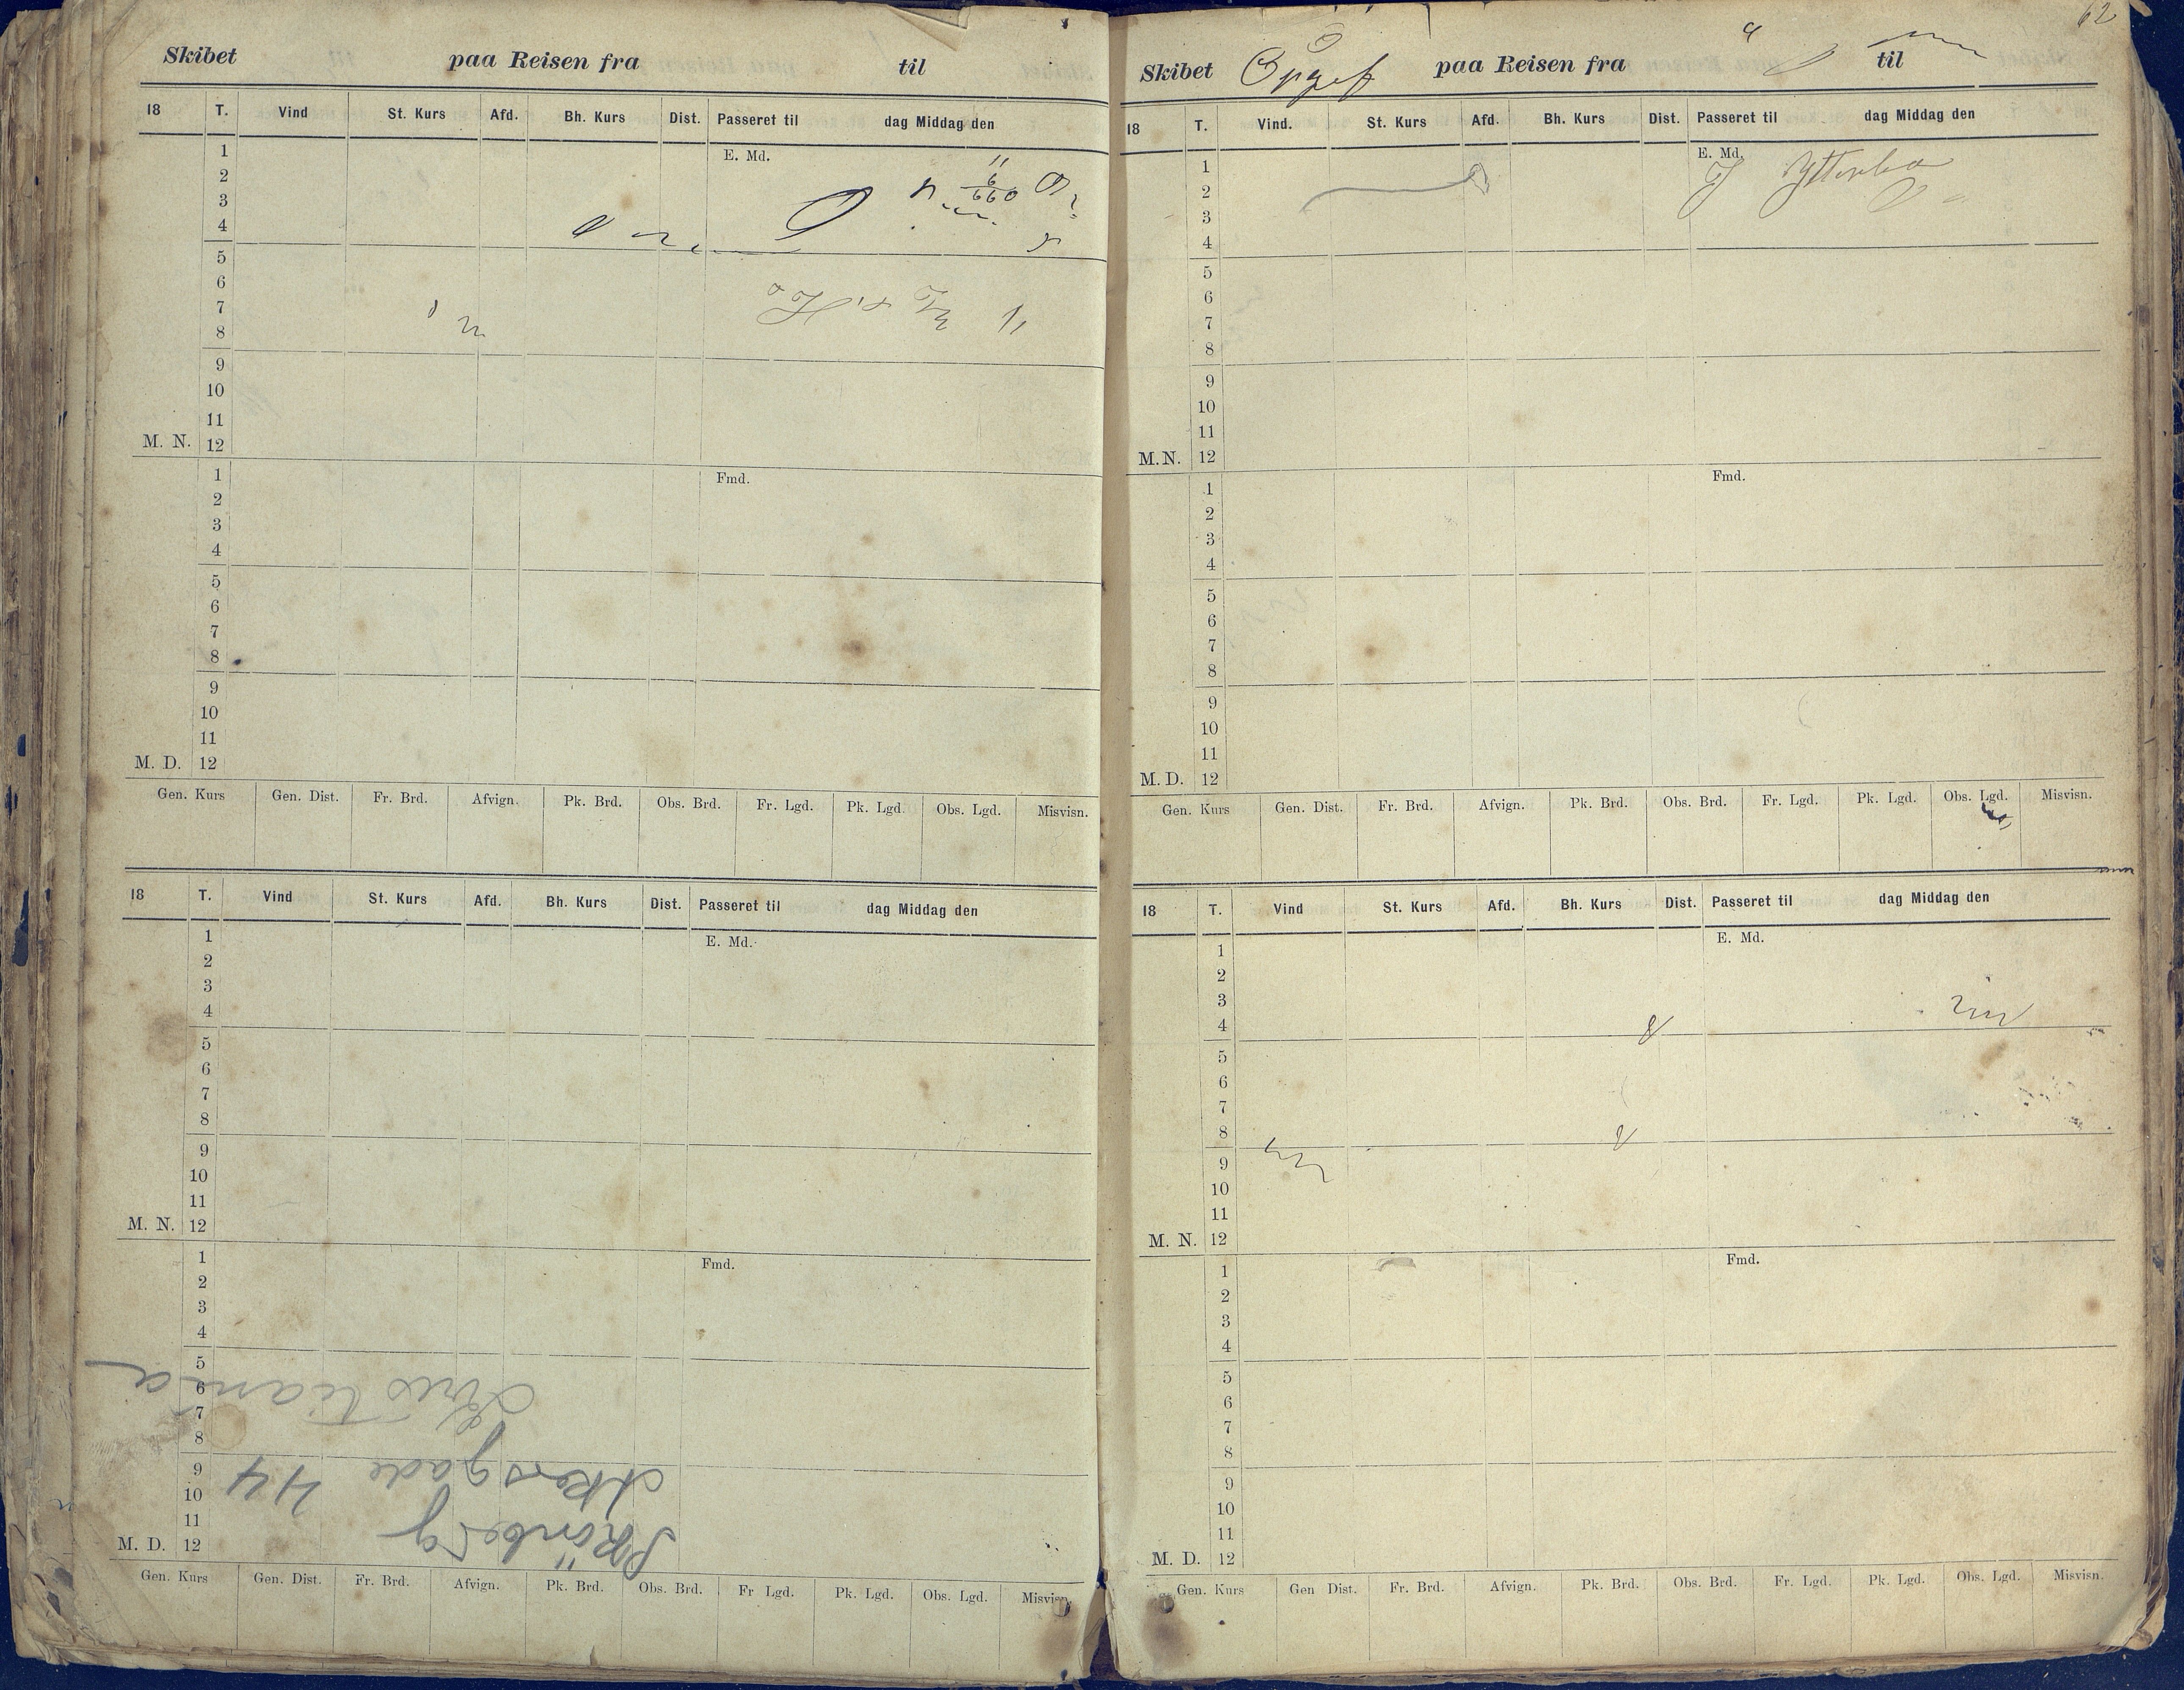 Skibet paa Reisen fra til
18 T. Vind St. Kurs Afd. Bh. Kurs Dist. Passeret til dag Middag den
1 E. Md.
2
3
4
5
6
7
8
9
10
11
M. N. 12
1 Fmd.
2
3
4
5
6
7
8
9
10
11
M. D. 12
Gen. Kurs Gen. Dist. Fr. Brd. Afvign. Pk. Brd. Obs. Brd. Fr. Lgd. Pk. Lgd. Obs. Lgd. Misvisn.
18 T. Vind St. Kurs Afd. Bh. Kurs Dist. Passeret til dag Middag den
1 E. Md.
2
3
4
5
6
7
8
9
10
11
M. N. 12
1 Fmd.
2
3
4
5
6
7
8
9
10
11
M. D. 12
Akersgade 44
Kristiania
Gen. Kurs Gen. Dist. Fr. Brd. Afvign. Pk. Brd. Obs. Brd. Fr Lgd. Pk. Lgd. Obs. Lgd. Misvisn.
62
Skibet paa Reisen fra til
18 T. Vind. St. Kurs Afd. Bh. Kurs Dist. Passeret til dag Middag den
1 E. Md.
Ytterbo
2
3
4
5
6
7
8
9
10
11
M. N. 12
1 Fmd.
2
3
4
5
6
7
8
9
10
11
M. D. 12
Gen. Kurs Gen. Dist. Fr. Brd. Afvign. Pk. Brd. Obs. Brd. Fr. Lgd. Pk. Lgd. Obs. Lgd. Misvisn.
18 T. Vind St. Kurs Afd. Bh. Kurs Dist. Passeret til dag Middag den
1 E. Md.
2
3
4
5
6
7
8
9
10
11
M. N. 12
1 Fmd.
2
3
4
5
6
7
8
9
10
11
M. D. 12
Gen. Kurs Gen Dist. Fr. Brd. Afvign. Pk. Brd. Obs. Brd. Fr. Lgd. Pk. Lgd. Obs. Lgd. Misvisn.